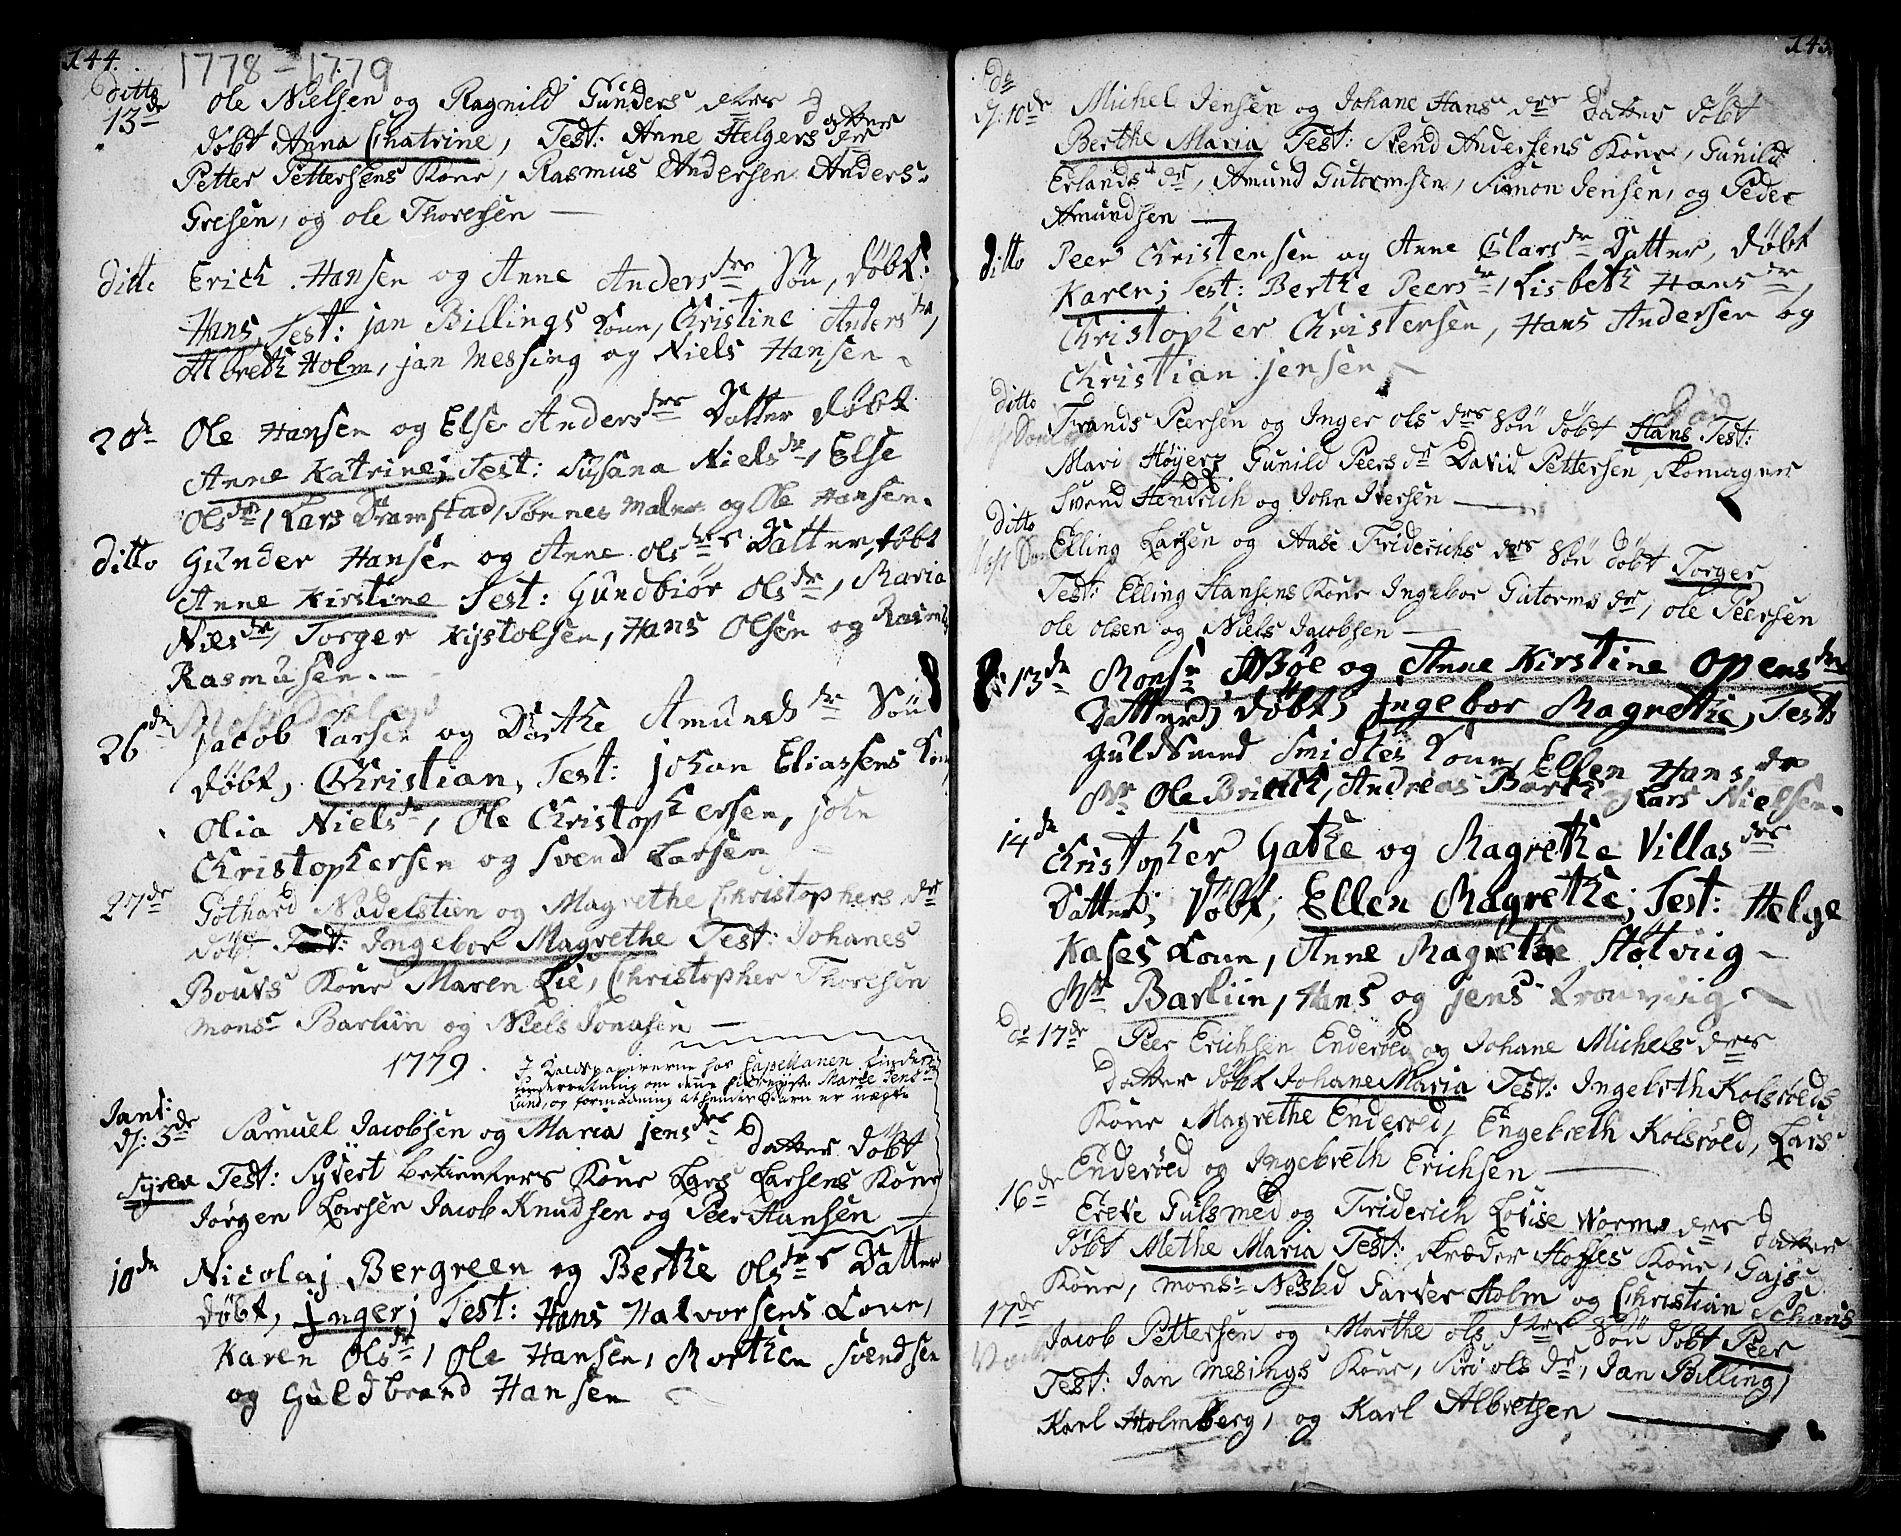 144.
1778 - 1779
ditto
13de Ole Nielsen og Ragnild Gunders dtrs Datter
døbt Anna Chatrine, Test: Anne Helgers dr
Petter Pettersens Kone, Rasmus Andersen Anders
Gresen, og Ole Thoresen —
ditto Erich Hansen og Anne Anders drs Sön, døbt:
Hans, Test: jan Billings Kone, Christine Anders dr,
Albreth Holm, jan Messing og Niels Hansen
20de Ole Hansen og Else Anders drs Datter døbt
Anne Katrine; Test: Susana Niels dr, Else
Ols dr, Lars Dramstad, Tønnes Maler og Ole Hansen.
ditto Gunder Hansen og Anne Ols drs Datter, døbt
Anne Kirstine Test: Gundbiør Ols dr, Maria
Niels dr, Torger Kystolsen, Hans Olsen og Rasmus
Rasmusen. —
26de Jacob Larsen og Dorthe Amunds dr Sön
døbt, Christian, Test: johan Eliassens Kone
Olia Niels dr, Ole Christophersen, john
Christophersen og Svend Larsen —
27de Gothard Nadelstien og Magrethe Christophers dr
døbt Ingebor Magrethe Test: Johanes
Bouts Kone Maren Lie, Christopher Thoresen
Mons: Barliin og Niels Jonasen —
1779.
I Daadspapirerne har Capellanen Linders
underretning om denne Marie Jens dr
Lund, og formodning at hendes Barn er
Janu:
d: 3de Samuel Jacobsen og Maria jens drs Datter døbt
Syrew Test: Syvert betienters Kone Lars Larsens Kone
Jørgen Larsen Jacob Knudsen og Peer Hansen —
10de Nicolaj Bergreen og Berthe Ols drs Datter
døbt, Inger; Test: Hans Halvorsens Kone,
Karen Ols dr, Ole Hansen, Morthen Svendsen
og Guldbrand Hansen
145.
do
d: 10de Michel Jensen og Johane Hans drs Datter døbt
Berthe Maria Test: Svend Andersens Kone, Gunild
Erlands dr, Amund Gutormsen, Simon Jensen, og Peder
Amundsen —
ditto Peer Christensen og Anne Clars dr Datter, døbt
Karen; Test: Berthe Peers dr, Lisbeth Hans dr,
Christopher Christensen, Hans Andersen og
Christian jensen
ditto Frands Peersen og Inger Ols drs Sön döbt Hans Test:
Mari Høyers Gunild Peers dr David Pettersen Skomager
Svend Hendrich og John Iversen —
ditto Elling Larsen og Aase Friderichs drs Sön døbt Torger
Test: Elling Hansens Kone Ingebor Gutorms dr, Ole Peersen
Ole Olsen og Niels Jacobsen —
13de Mons: Bøe og Anne Kirstine Opens drs
Datter, døbt, Ingebor Magrethe, Test:
Guldsmed Smidtes Kone, Ellen Hans dr
Mr Ole Brinch, Andreas Barth og Lars Nielsen.
14de Christopher Gathe og Magrethe Villas drs
Datter; døbt, Ellen Magrethe; Test: Helge
Kases Kone, Anne Magrethe Høtvig —
Mr Barliin, Hans og jens Tronviig
d: 17de Peer Erichsen Enderöed og Johane Michels drs
Datter døbt Johane Maria Test: Ingebreth Kolsröeds
Kone Magrethe Enderöed, Engebreth Kolsröed, Lars
Enderöed og Ingebreth Erichsen —
16de Greve Gulsmed og Friderich Lovise Worms drs Datter
døbt Methe Maria Test: Skræder Hoffes Kone, Gajs
Kone, Mons: Nested Farver Holm og Christian Schans
17de Jacob Pettersen og Marthe Ols drs Sön døbt Peer
Test: Jan Mesings Kone, Siri Ols dr, Jan Billing,
Karl Holmberg, og Karl Albretsen —